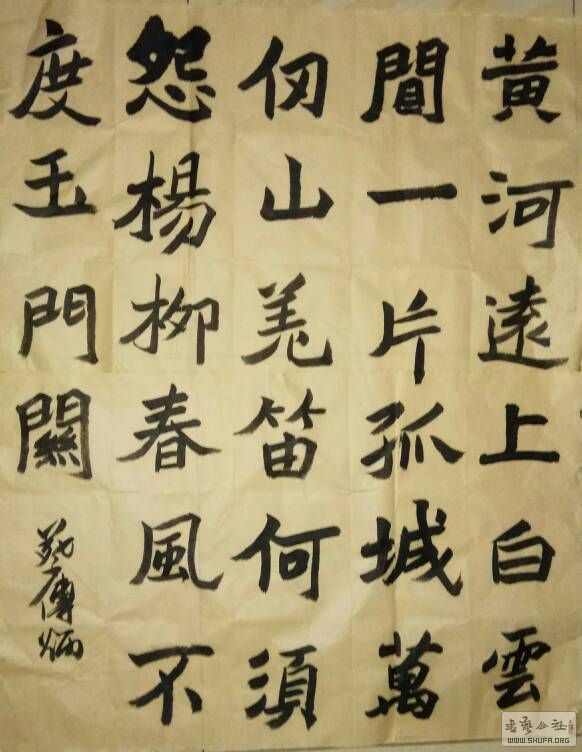 黄河遠上白雲
間一片孤城萬
仞山羌笛何須
怨楊柳春風不
度玉門關
書藝公社
WWW.SHUFA.ORG